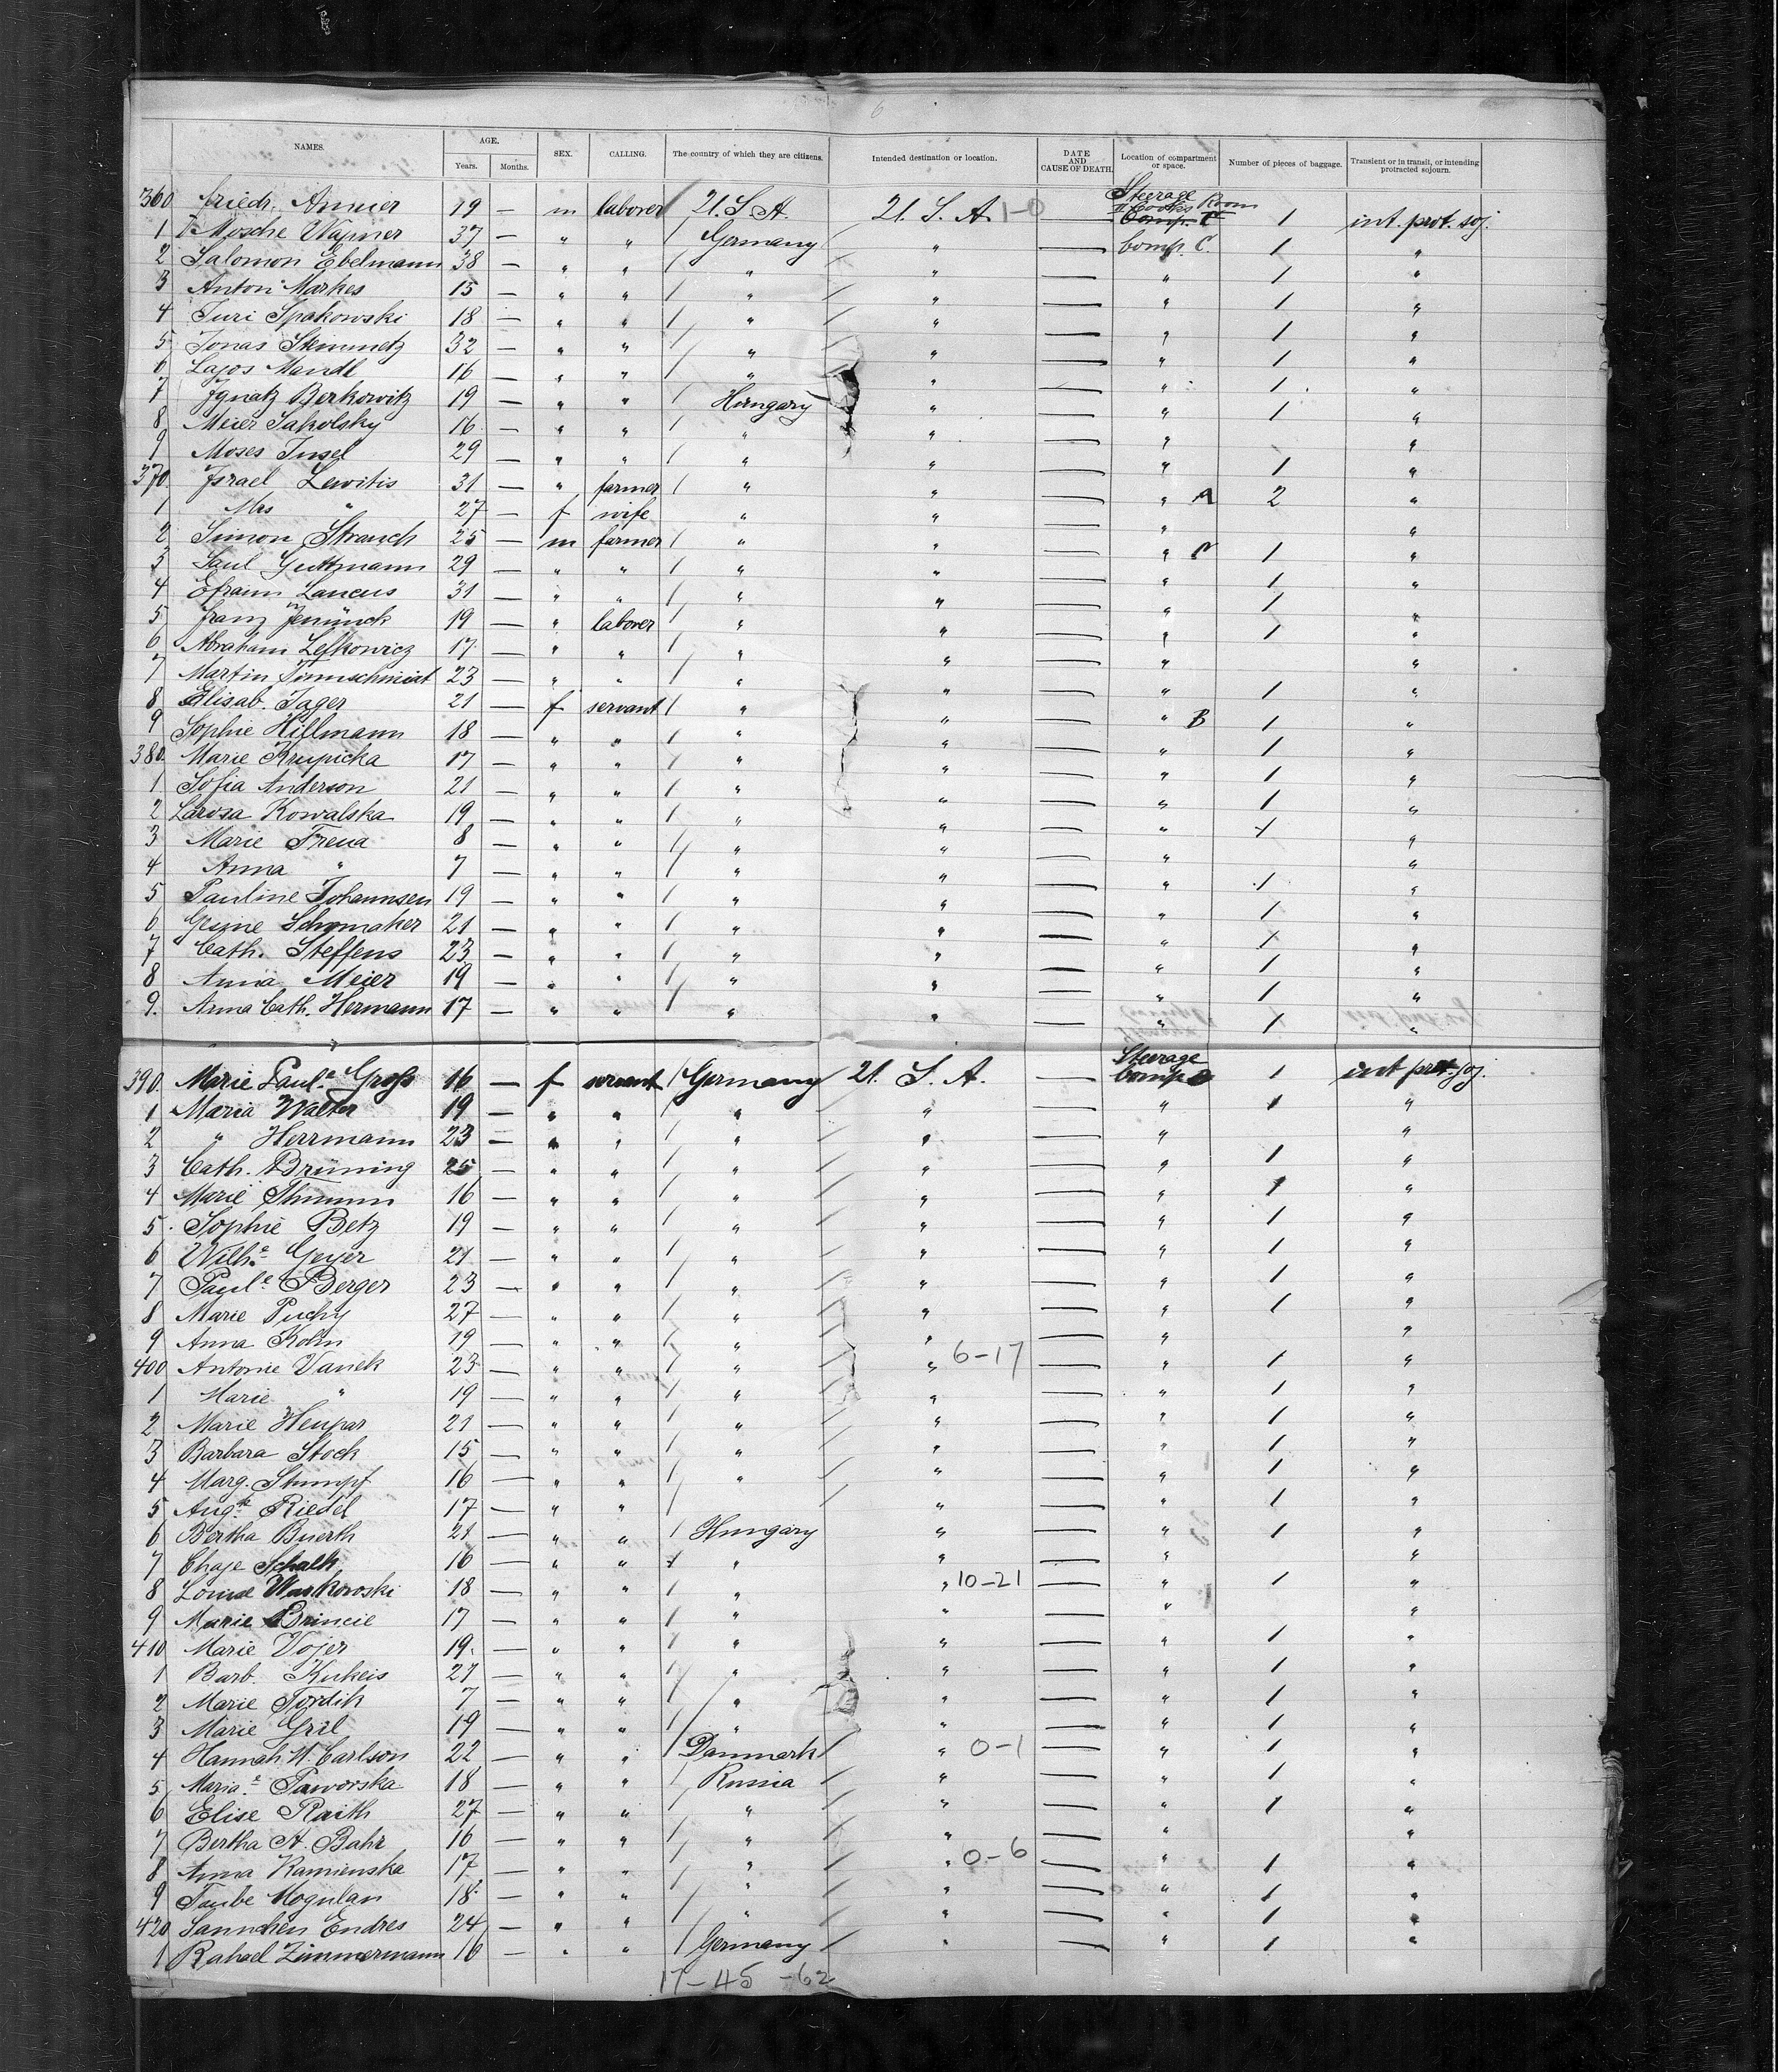 6
NAMES. AGE. Years. Months. SEX. CALLING. The country of which they are citizens. Intended destination or location. DATE AND CAUSE OF DEATH. Location of compartment or space. Number of pieces of baggage. Transient or in transit, or intending protracted sojourn.
360 Friedr. Annier 19 — m laborer U.S.A. U.S.A. 1-0 Steerage II Cooks Room Comp. C 1 int. prot. soj.
1 Mosche Wapner 37 — " " Germany " — Comp. C. 1 "
2 Salomon Ebelmann 38 — " " " " — " 1 "
3 Anton Markes 15 — " " " " — " 1 "
4 Juri Spakowski 18 — " " " " — " 1 "
5 Jonas Stemmetz 32 — " " " " — " 1 "
6 Lajos Mandl 16 — " " " " — " 1 "
7 Ignatz Berkowitz 19 — " " Hungary " — " 1 "
8 Meier Sakolsky 16 — " " " " — " "
9 Moses Insel 29 — " " " " — " 1 "
370 Israel Lewitis 31 — " farmer " " — " A 2 "
1 Mrs " 27 — f wife " " — " "
2 Simon Strauch 25 — m farmer " " — " C 1 "
3 Saul Guttmann 29 — " " " " — " 1 "
4 Efraim Lancus 31 — " " " " — " 1 "
5 Franz Jemünck 19 — " laborer " " — " 1 "
6 Abraham Lefkowicz 17 — " " " " — " "
7 Martin Timmschmidt 23 — " " " " — " 1 "
8 Elisab. Jager 21 — f servant " " — " B 1 "
9 Sophie Hillmann 18 — " " " " — " 1 "
380 Marie Krupicka 17 — " " " " — " 1 "
1 Sofia Anderson 21 — " " " " — " 1 "
2 Larosa Kowalska 19 — " " " " — " 1 "
3 Marie Freua 8 — " " " " — " "
4 Anna " 7 — " " " " — " 1 "
5 Pauline Johannsen 19 — " " " " — " 1 "
6 Gesine Schomaker 21 — " " " " — " 1 "
7 Cath. Steffens 23 — " " " " — " 1 "
8 Anna Meier 19 — " " " " — " 1 "
9. Anna Cath. Hermann 17 — " " " " — " 1 "
390. Marie Paul.e Groß 16 — f servant Germany U.S.A. — Steerage Comp. 1 int prot. soj.
1 Maria Walter 19 — " " " " — " 1 "
2 " Herrmann 23 — " " " " — " "
3 Cath. Brüning 25 — " " " " — " 1 "
4 Marie Thumm 16 — " " " " — " 1 "
5 Sophie Betz 19 — " " " " — " 1 "
6 Wilh.e Geyer 21 — " " " " — " 1 "
7 Paul.e Berger 23 — " " " " — " 1 "
8 Marie Puchy 27 — " " " " — " 1 "
9 Anna Kohn 19 — " " " " — " "
400 Antonie Vanek 23 — " " " " 6-17 — " 1 "
1 Marie " 19 — " " " " — " 1 "
2 Marie Heupar 21 — " " " " — " 1 "
3 Barbara Stock 15 — " " " " — " 1 "
4 Marg. Stumpf 16 — " " " " — " 1 "
5 Aug.te Riedel 17 — " " — " 1 "
6 Bertha Buerth 21 — " " Hungary " — " 1 "
7 Chaje Schalk 16 — " " " " — " "
8 Louise Wurkowski 18 — " " " " 10-21 — " 1 "
9 Marie Brincie 17 — " " " " — " "
410 Marie Vojer 19 — " " " " — " 1 "
1 Barb. Kukeis 21 — " " " " — " 1 "
2 Marie Tordik 7 — " " " " — " 1 "
3 Marie Gril 19 — " " " " — " 1 "
4 Hannah W. Carlson 22 — " " Danmark " 0-1 — " 1 "
5 Maria.e Paworska 18 — " " Russia " — " 1 "
6 Elise Raith 27 — " " " " — " 1 "
7 Bertha A. Bahr 16 — " " " " — " "
8 Anna Kamienska 17 — " " " " 0-6 — " 1 "
9 Taube Mogulan 18 — " " " " — " 1 "
420 Sannchen Endres 24 — " " " " — " 1 "
1 Rahael Zimmermann 16 — " " Germany " — " 1 "
17-45-62